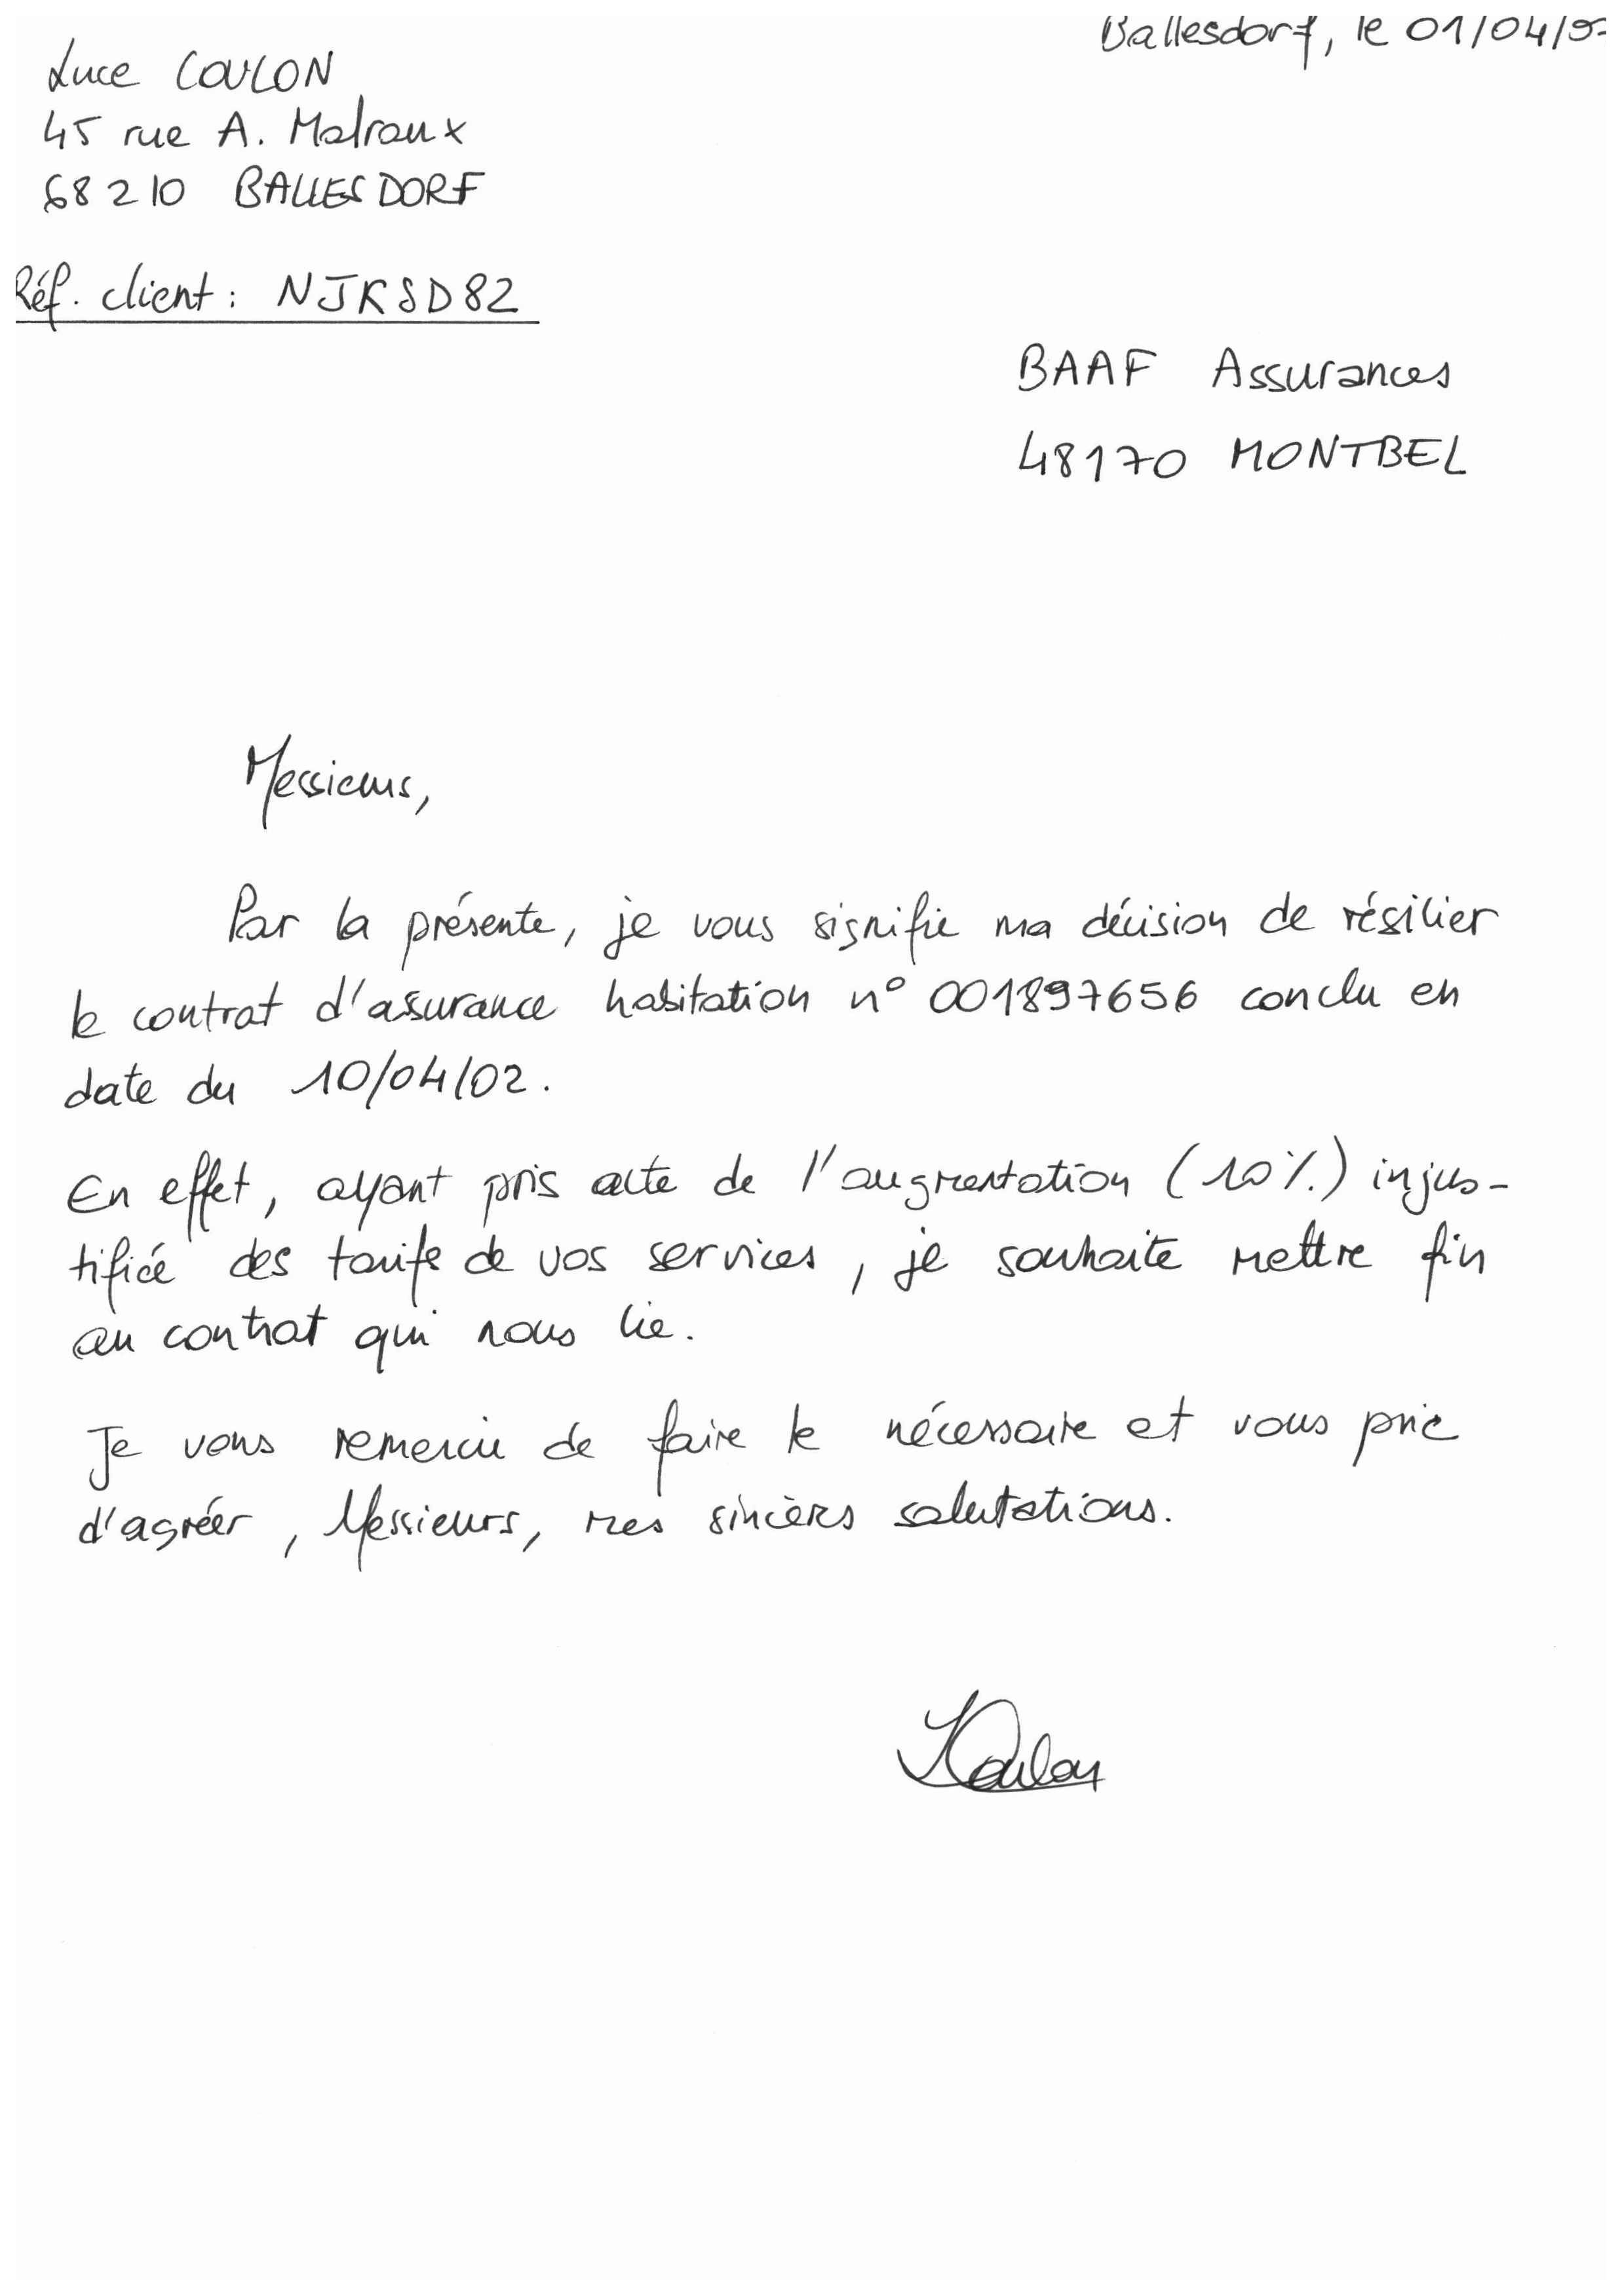 Ballesdorf, le 01/04/
Luce COULON
45 rue A. Malraux
68210 BALLESDORF
Réf. client : NJKSD82
BAAF Assurances
48170 MONTBEL
Messieurs,
Par la présente, je vous signifie ma décision de résilier
le contrat d'assurance habitation n° 001897656 conclu en
date du 10/04/02.
En effet, ayant pris acte de l'augmentation (10%) injus-
tifiée des tarifs de vos services, je souhaite mettre fin
au contrat qui nous lie.
Je vous remercie de faire le nécessaire et vous prie
d'agréer, Messieurs, mes sincères salutations.
LCoulon